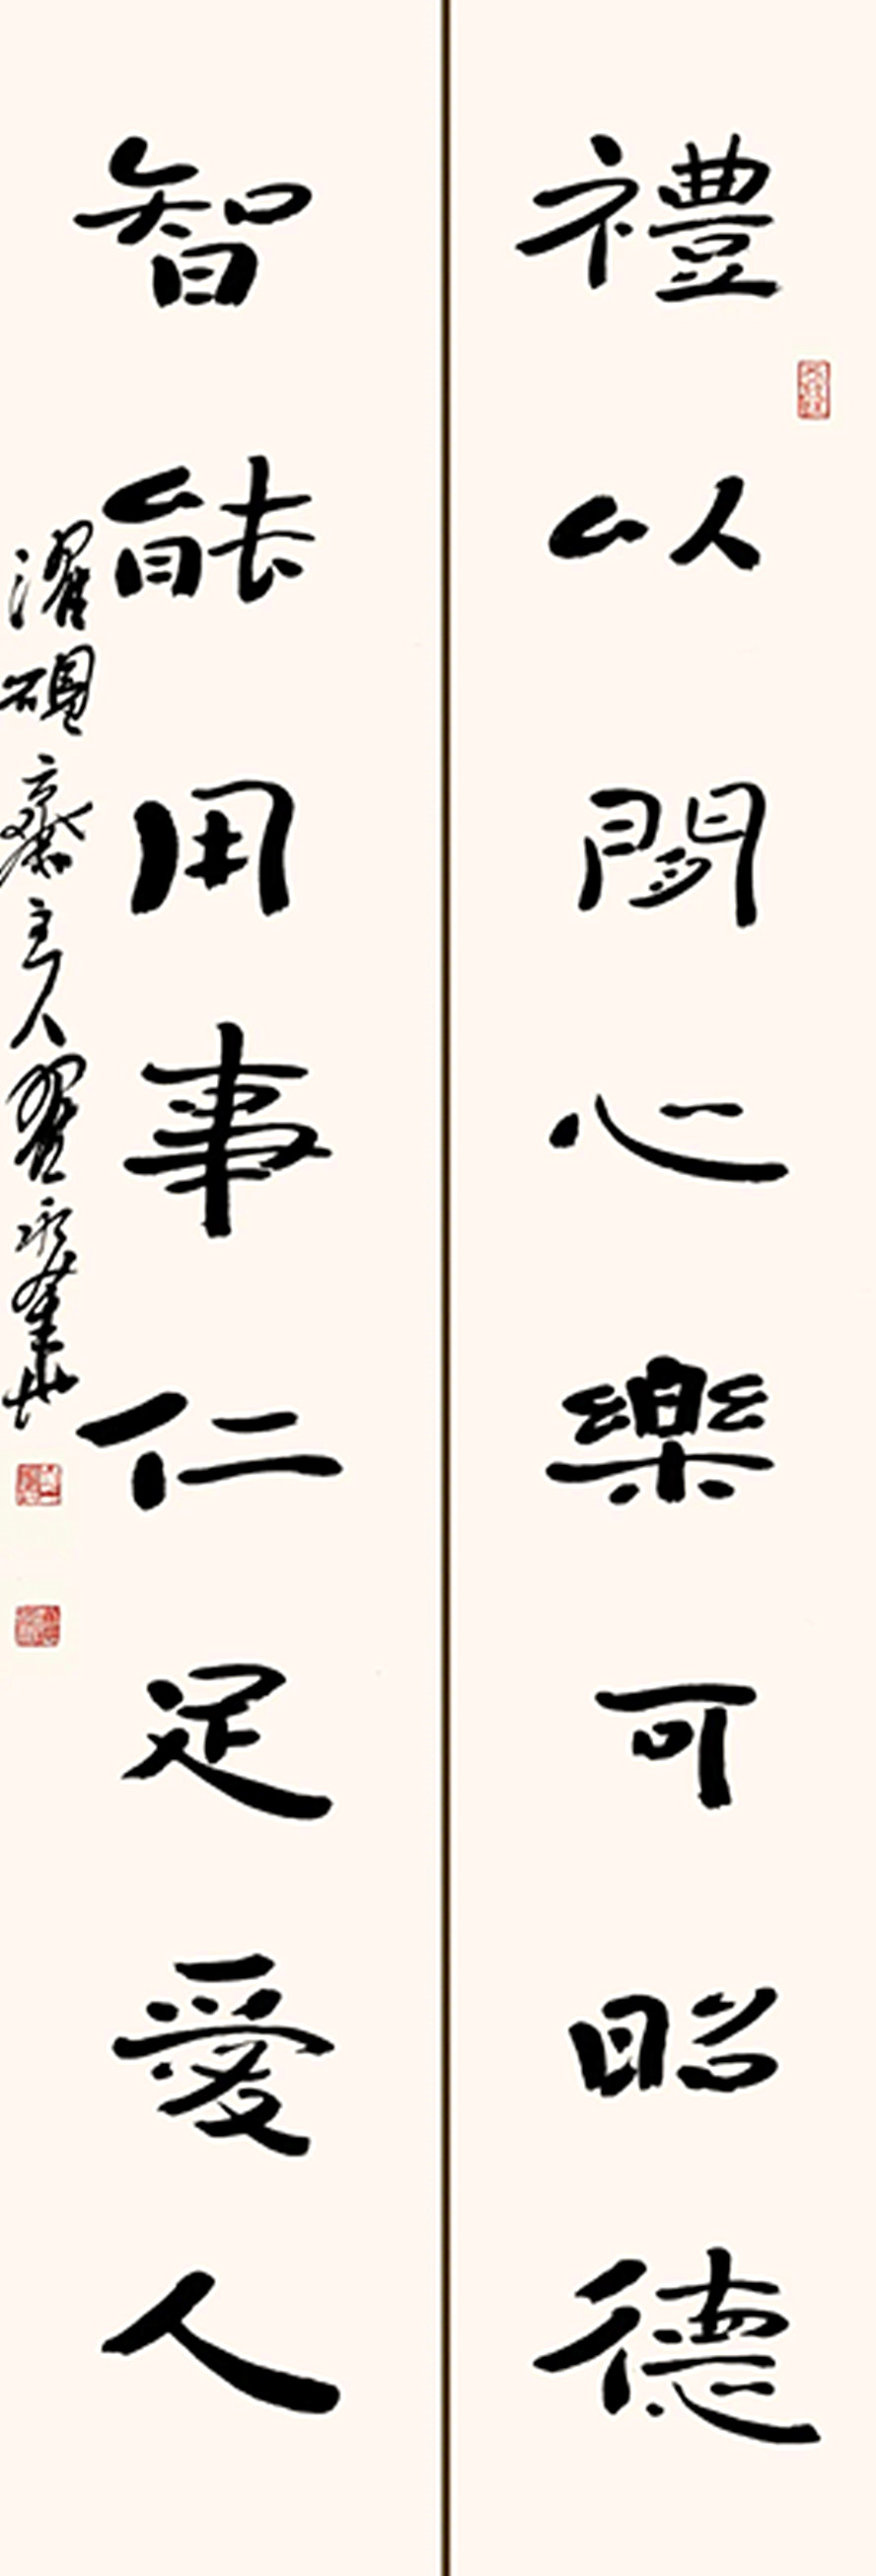 禮以閒心樂可昭德
智能用事仁足愛人
濯硯齋主人翟永華